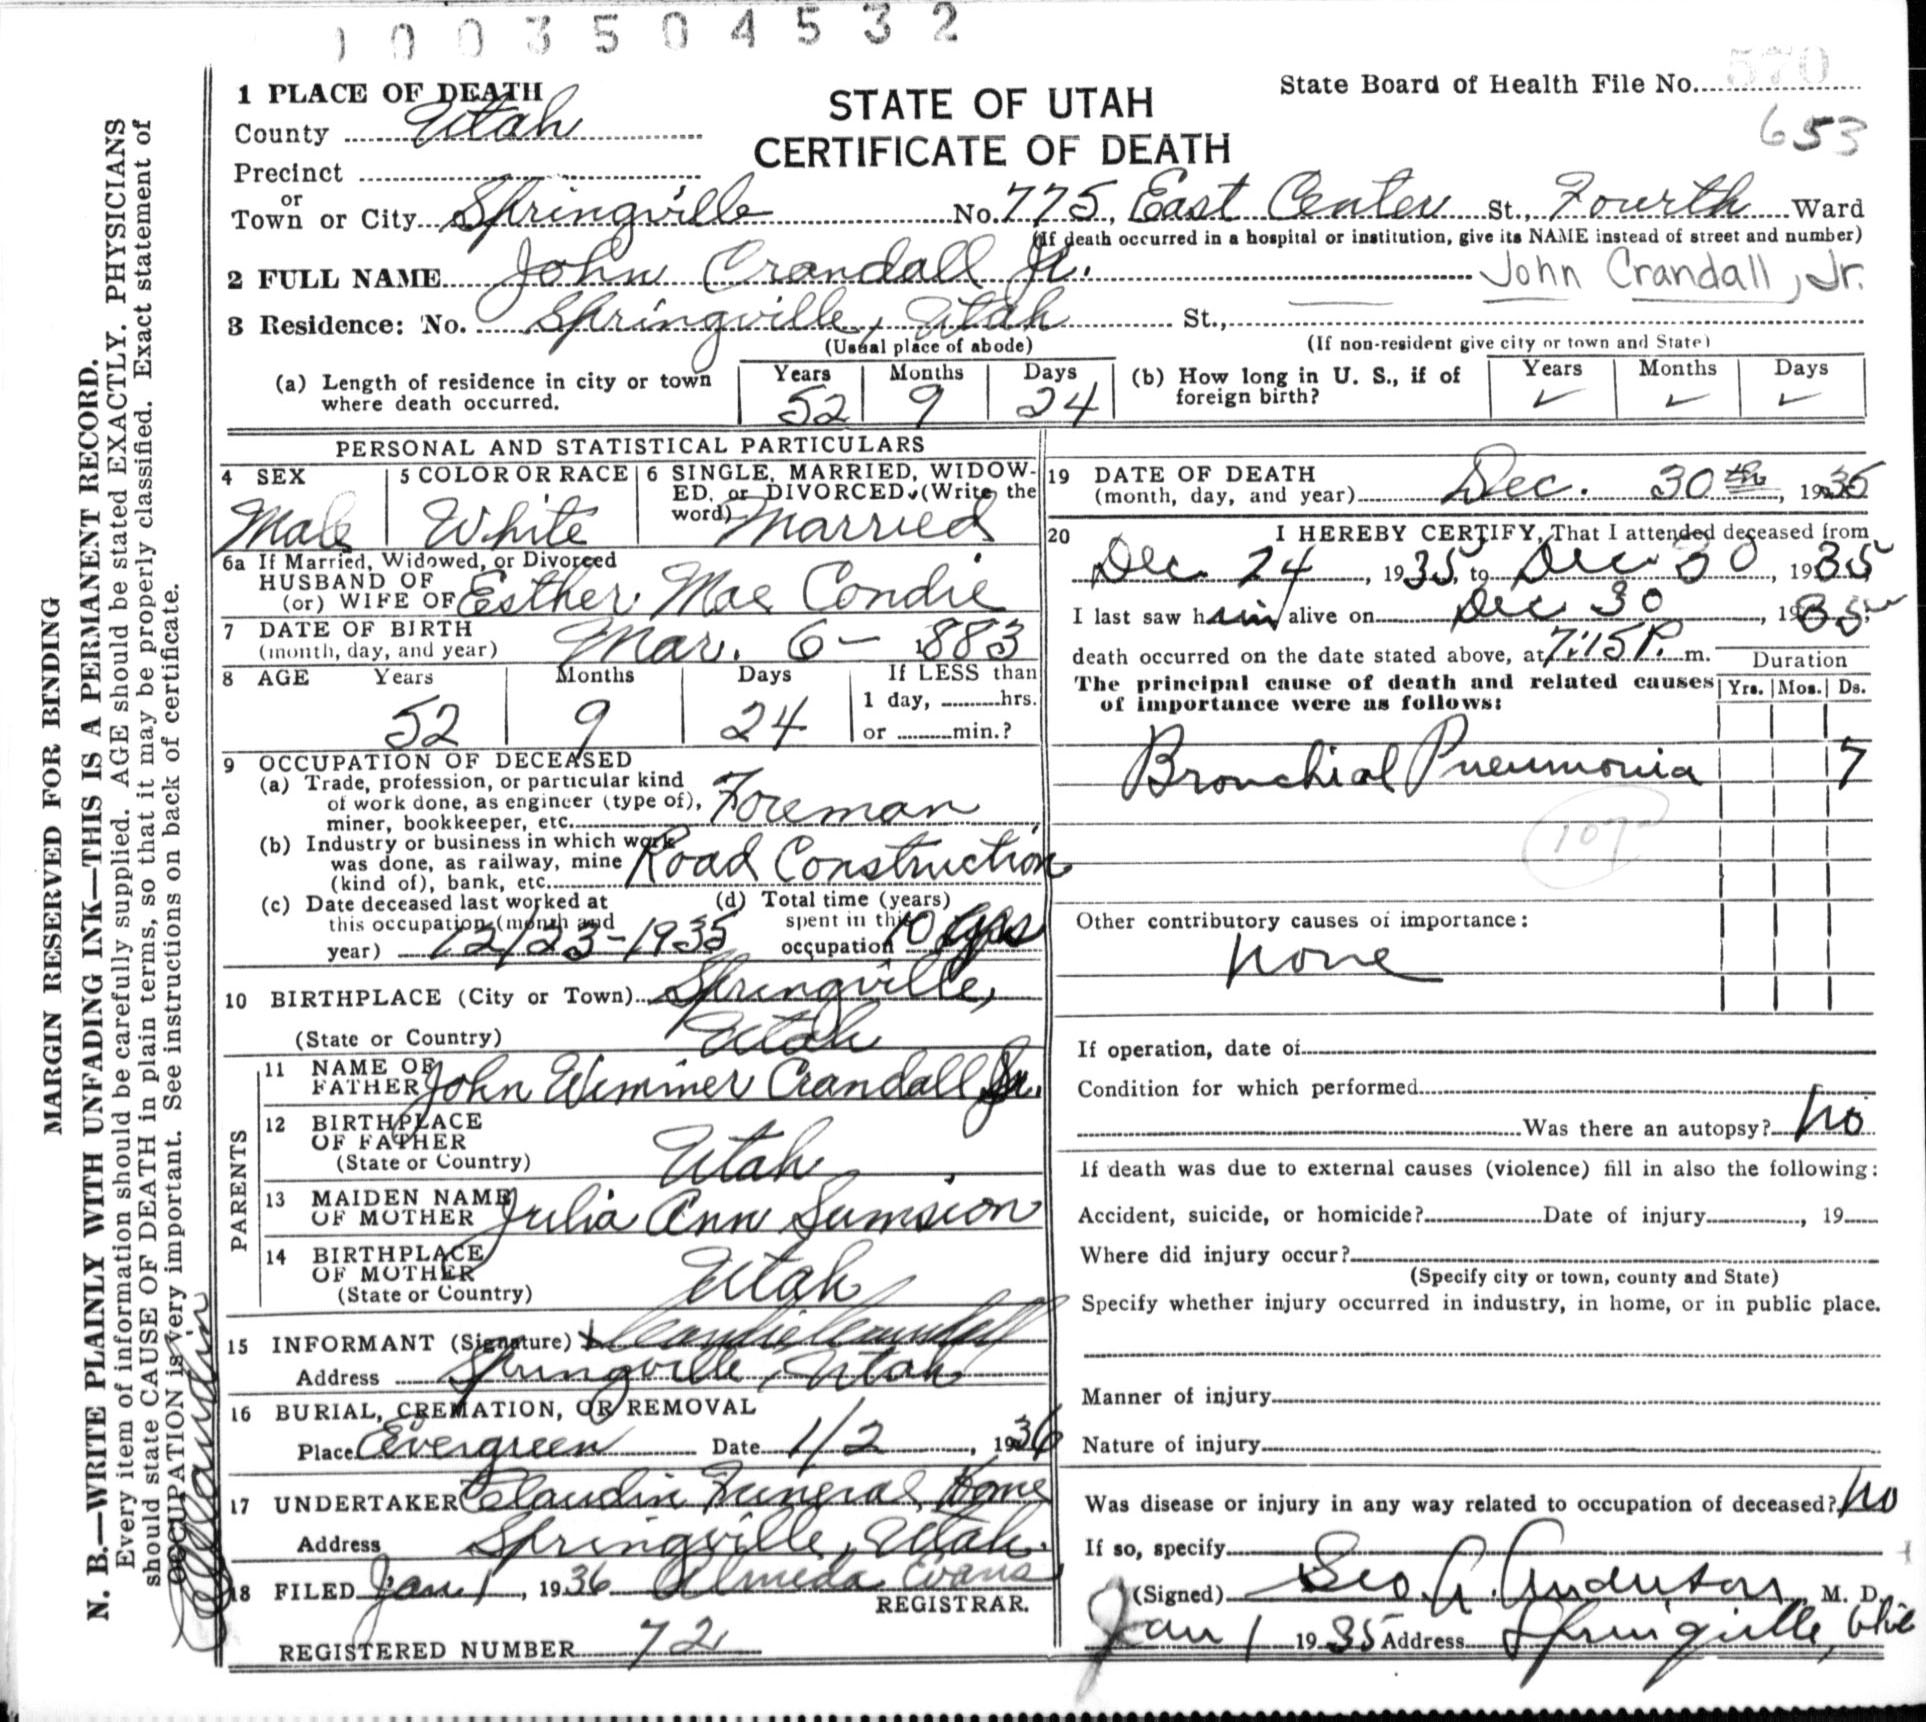 1003504532
1 PLACE OF DEATH
County Utah
STATE OF UTAH
CERTIFICATE OF DEATH
State Board of Health File No. 570
653
Precinct
or
Town or City Springville No. 775, East Center St., Fourth Ward
(If death occurred in a hospital or institution, give its NAME instead of street and number)
2 FULL NAME John Crandall Jr. John Crandall, Jr.
3 Residence: No. Springville, Utah St.,
(Usual place of abode) (If non-resident give city or town and State)
(a) Length of residence in city or town where death occurred. Years 52 Months 9 Days 24
(b) How long in U. S., if of foreign birth? Years ✓ Months ✓ Days ✓
PERSONAL AND STATISTICAL PARTICULARS
4 SEX
Male
5 COLOR OR RACE
White
6 SINGLE, MARRIED, WIDOW-
ED, or DIVORCED. (Write the
word) Married
6a If Married, Widowed, or Divorced
HUSBAND OF
(or) WIFE OF Esther Mae Condie
7 DATE OF BIRTH
(month, day, and year) Mar. 6 - 1883
8 AGE Years Months Days If LESS than
52 9 24 1 day, hrs.
or min.?
9 OCCUPATION OF DECEASED
(a) Trade, profession, or particular kind
of work done, as engineer (type of),
miner, bookkeeper, etc. Foreman
(b) Industry or business in which work
was done, as railway, mine
(kind of), bank, etc. Road Construction
(c) Date deceased last worked at
this occupation (month and
year) 12/23-1935
(d) Total time (years)
spent in this
occupation 10 yrs
10 BIRTHPLACE (City or Town) Springville,
(State or Country) Utah
PARENTS
11 NAME OF
FATHER John Wimmer Crandall Sr.
12 BIRTHPLACE
OF FATHER
(State or Country) Utah
13 MAIDEN NAME
OF MOTHER Julia Ann Sumsion
14 BIRTHPLACE
OF MOTHER
(State or Country) Utah
15 INFORMANT (Signature) x Crandall
Address Springville, Utah
16 BURIAL, CREMATION, OR REMOVAL
Place Evergreen Date 1/2, 1936
17 UNDERTAKER Claudin Funeral Home
Address Springville, Utah.
18 FILED Jan 1, 1936 Almeda Evans
REGISTRAR.
REGISTERED NUMBER 72
19 DATE OF DEATH
(month, day, and year) Dec. 30th, 1935
20 I HEREBY CERTIFY, That I attended deceased from
Dec. 24, 1935, to Dec 30, 1935
I last saw him alive on Dec 30, 1935,
death occurred on the date stated above, at 7:15 P. m.
Duration
The principal cause of death and related causes
of importance were as follows:
Yrs. Mos. Ds.
Bronchial Pneumonia 7
107
Other contributory causes of importance:
none
If operation, date of
Condition for which performed
Was there an autopsy? no
If death was due to external causes (violence) fill in also the following:
Accident, suicide, or homicide? Date of injury , 19
Where did injury occur?
(Specify city or town, county and State)
Specify whether injury occurred in industry, in home, or in public place.
Manner of injury
Nature of injury
Was disease or injury in any way related to occupation of deceased? no
If so, specify
(Signed) Geo A. Anderson M. D.
Jan 1 1935 Address Springville, Utah
MARGIN RESERVED FOR BINDING
N. B.—WRITE PLAINLY WITH UNFADING INK—THIS IS A PERMANENT RECORD.
Every item of information should be carefully supplied. AGE should be stated EXACTLY. PHYSICIANS
should state CAUSE OF DEATH in plain terms, so that it may be properly classified. Exact statement of
OCCUPATION is very important. See instructions on back of certificate.